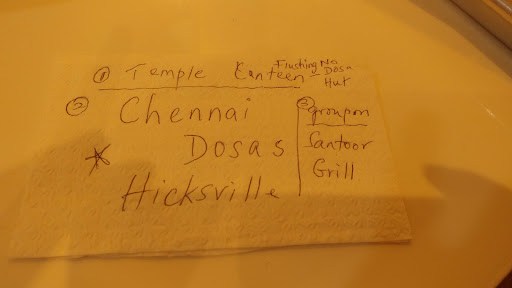 ① Temple Canteen - Flushing No Dosa Hut
② Chennai
Dosas
* Hicksville
③ groupon
Santoor
Grill